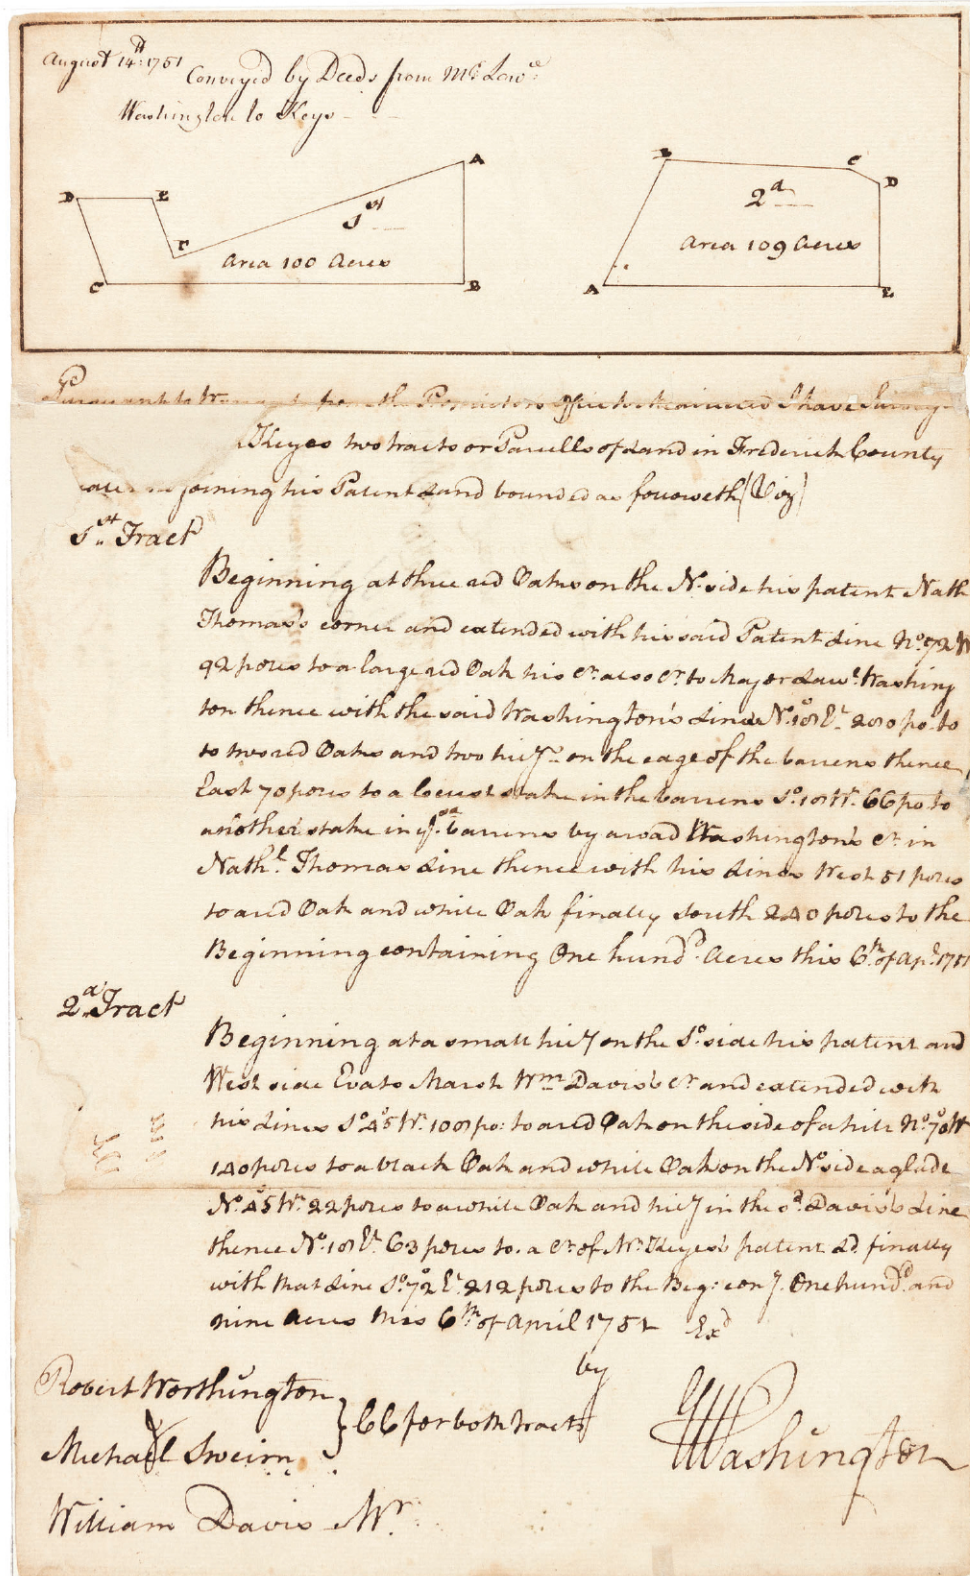 August 14th 1751
Conveyed by Deeds from Mr. Lawce
Washington to Keys
D E A
1st
F
Area 100 Acres
C B
B C
D
2d
Area 109 Acres
A E
Pursuant to from the Proprietors Office to me directed I have Survey-
Keyes two tracts or Parcells of Land in Frederick County
joining his Patent Land bounded as followeth (Viz)
1st Tract
Beginning at three red Oaks on the No. side his patent Nath
Thomas's corner and extended with his said Patent Line No. 72 W
92 poles to a large red Oak his Cr. also Cr. to Major Lawe. Washing
ton thence with the said Washington's Line No. 18 Et. 200 po. to
to two red Oaks and two hicy. on the edge of the barrens thence
East 70 poles to a Locust stake in the barrens So. 18 Wt. 66 po to
another stake in ye. barrens by a road Washington's Cr. in
Nathl. Thomas Line thence with his Lines West 51 poles
to a red Oak and white Oak finally South 240 poles to the
Beginning containing One hundd. Acres this 6th of Apl. 1751
2d Tract
Beginning at a small hicy on the So. side his patent and
West side Evats Marsh Wm Davis's Cr. and extended with
his Lines So. 45 Wt. 100 po: to a red Oak on the side of a hill No. 70 W
140 poles to a black Oak and white Oak on the No. side a glade
No. 45 Wt. 22 poles to a white Oak and hicy in the sd. Davis's Line
thence No. 18 Et. 63 poles to. a Cr. of Mr. Keyes's patent Ld. finally
with that Line So. 72 Et. 212 poles to the Beg: cong. One hundd. and
nine Acres this 6th of April 1751 Exd
by
Robert Worthington
} CC for both tracts
GWashington
Michael Sweim
William Davis Mr.